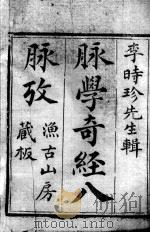 李時珍先生輯
脉學奇經八
脉攷
漁古山房
藏板